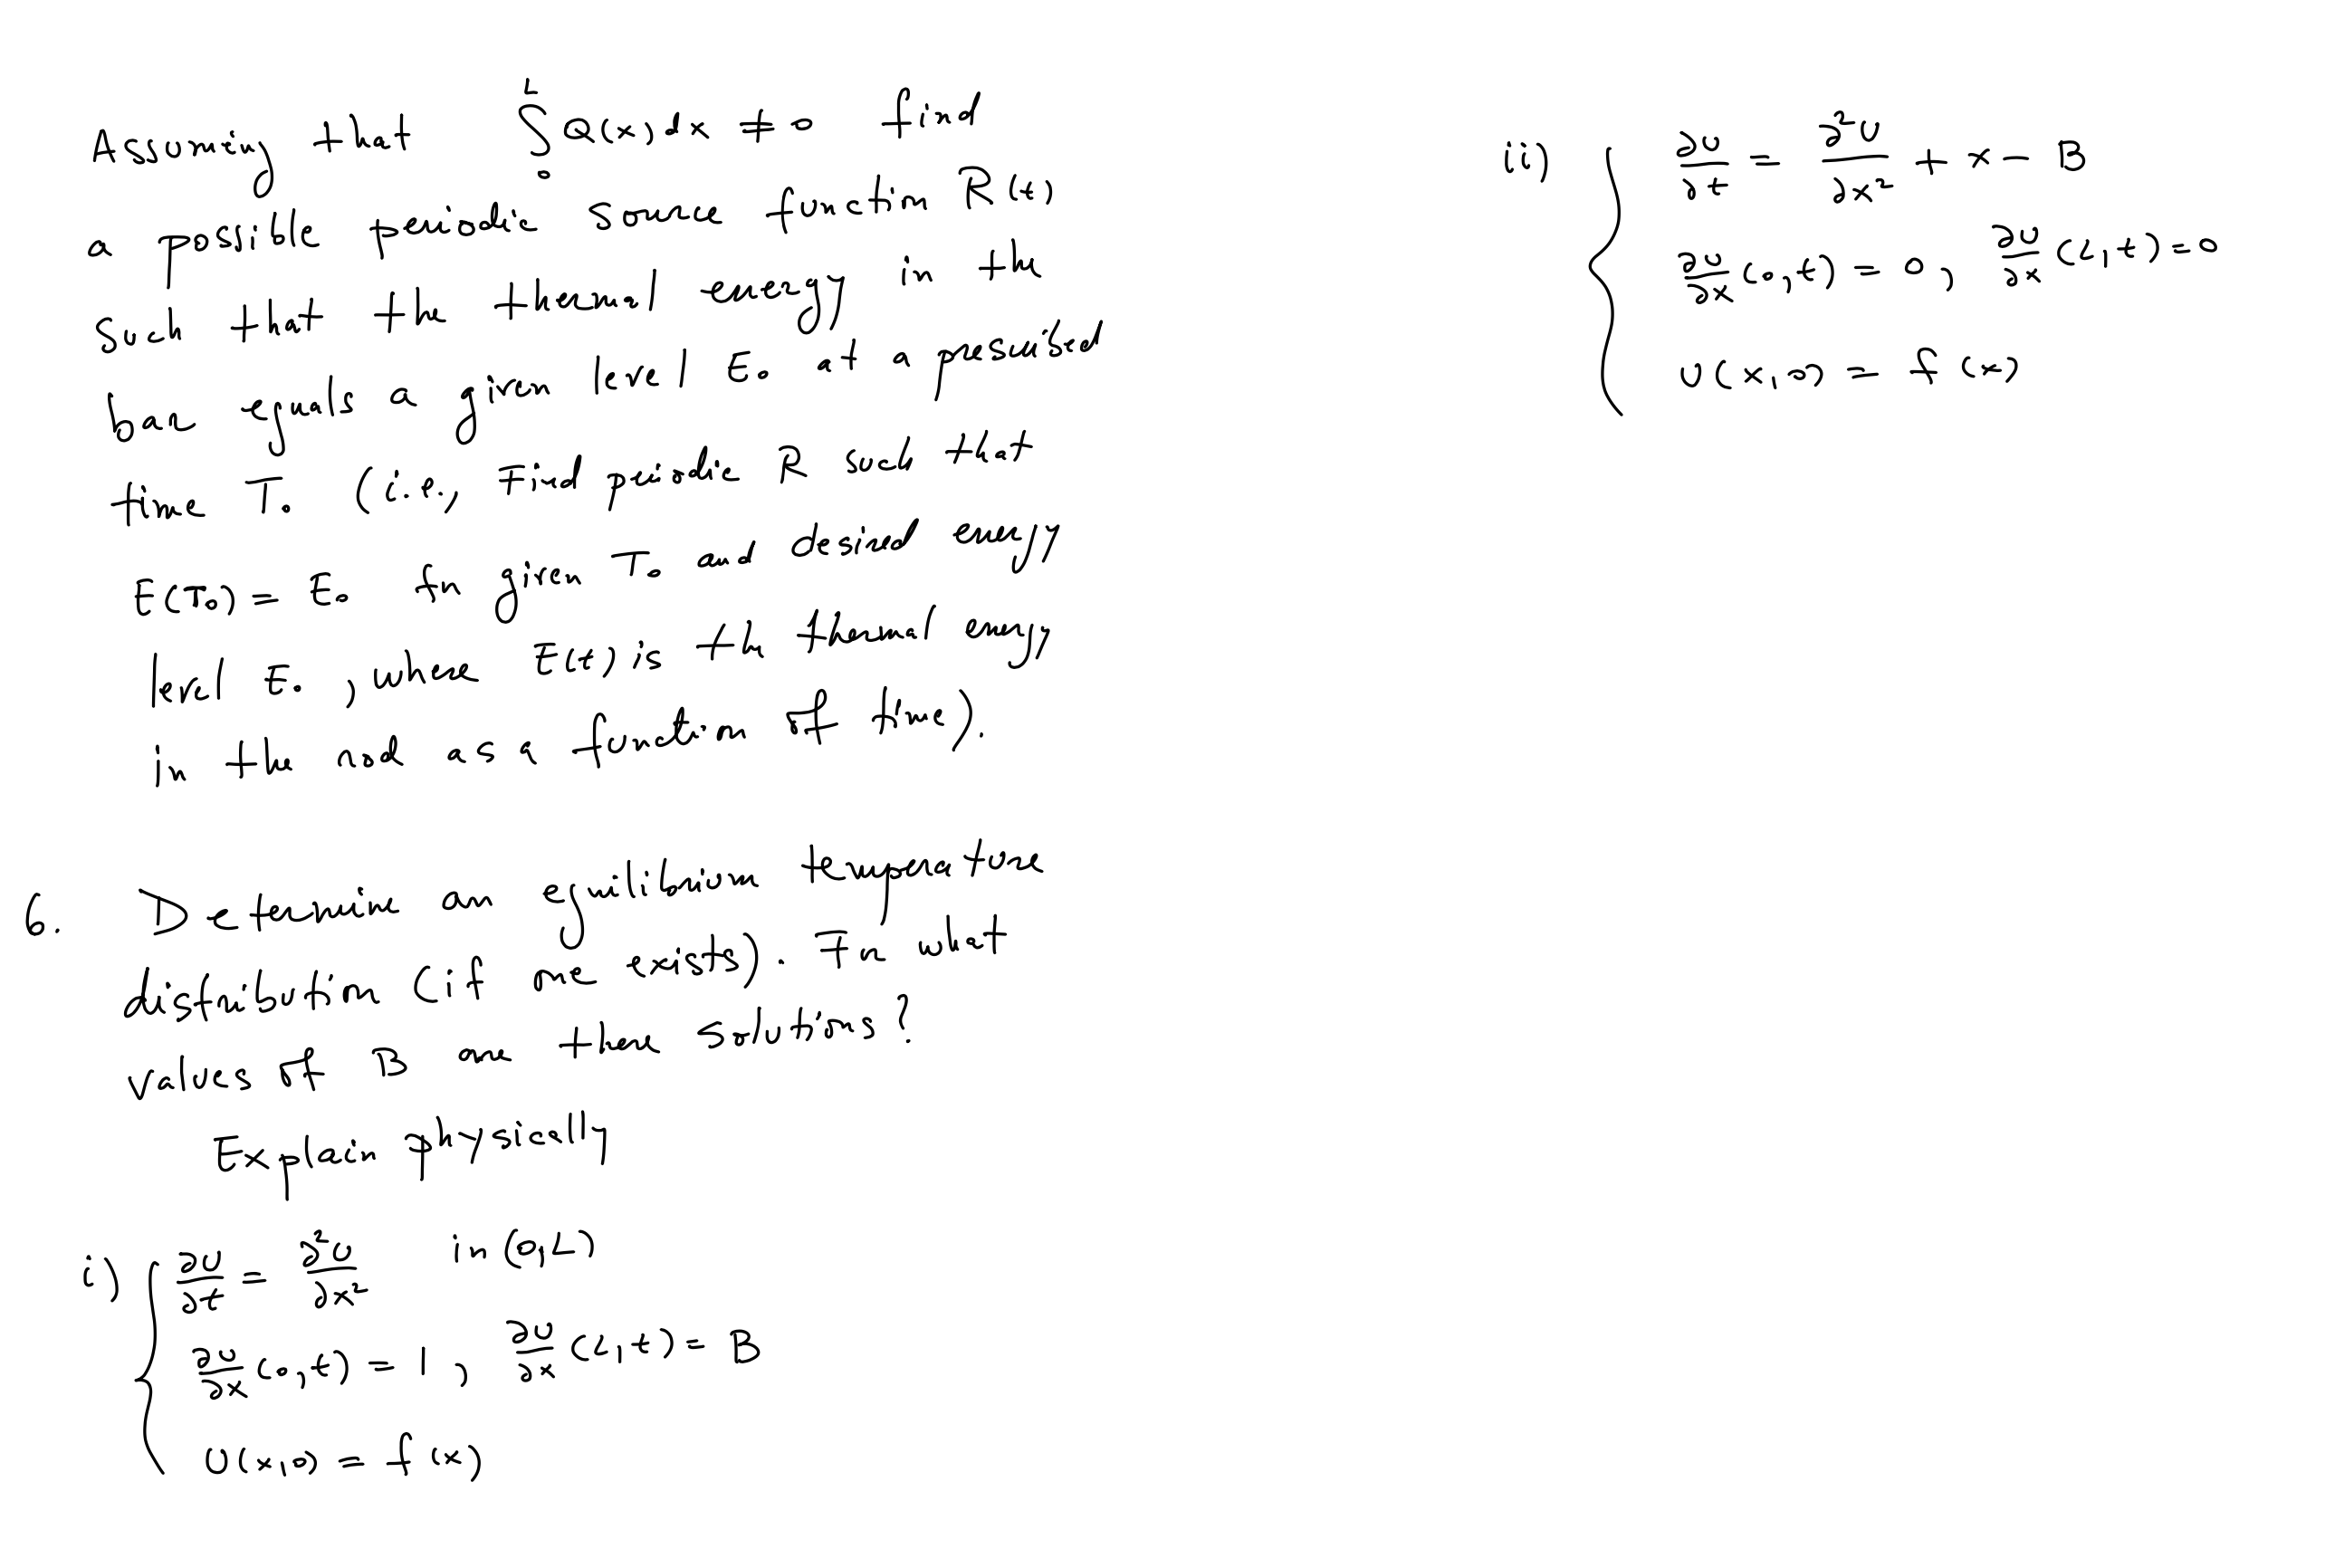 Assuming that ∫₀ᴸ Q(x) dx ≠ 0 find
a possible periodic source function R(t)
such that the thermal energy in the
bar equals a given level E₀ at a prescribed
time T₀ (i.e., Find periodic R such that
E(T₀) = E₀ for given T₀ and desired energy
level E₀, where E(t) is the thermal energy
in the rod as a function of time).
6. Determine an equilibrium temperature
distribution (if one exists). For what
values of B are there solutions?
Explain physically
i) ∂U/∂t = ∂²U/∂x² in (0,L)
∂U/∂x (0,t) = 1, ∂U/∂x (L,t) = B
U(x,0) = f(x)
ii) ∂U/∂t = ∂²U/∂x² + x - B
∂U/∂x (0,t) = 0, ∂U/∂x (L,t) = 0
U(x,0) = f(x)